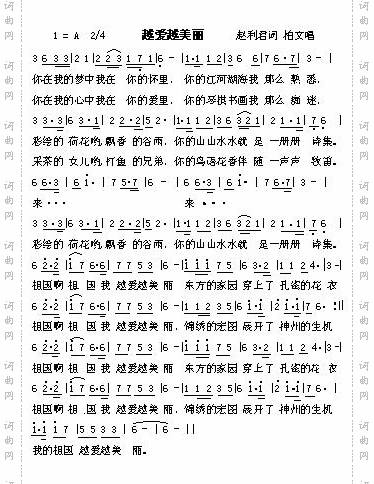 1 = A 2/4 越爱越美丽 赵利君词 柏文唱
3 6 3 3 | 2 1 | 2 2 3 1 7 1 | 6 - | 1·1 1 2 | 3 6 | 7 6·7 | 3 - |
你在我的梦中我在 你的怀里, 你的江河湖海我 那么 熟 悉,
你在我的心中我在 你的爱里, 你的琴棋书画我 那么 痴 迷,
3 3·3 | 6 3·1 | 2 2·2 | 5 2· | 1·1 1 2 | 3 6 3 2 1 | 2·1 2·1 | 7 6 |
彩绘的 荷花哟,飘香 的谷雨, 你的山山水水就 是 一册册 诗集。
采茶的 女儿哟,打鱼 的兄弟, 你的鸟语花香伴 随 一声声 牧笛。
6 6·3 | 6 1· | 7 5·7 | 6 - | 6 6·3 | 6 1· | 7 6·7 | 3 - |
来 · · · 来 · · ·
3 3·3 | 6 3·1 | 2 2·2 | 5 2· | 1·1 1 2 | 3 6 3 2 1 | 2·1 2·1 | 7 6 |
彩绘的 荷花哟,飘香 的谷雨, 你的山山水水就 是 一册册 诗集。
6 2·2 | 1 7 6·6 | 7 7 5 3 | 6 - | 1 1 1 7 5 | 6 3·2 | 1 1 2 4· | 3 - |
祖国啊 祖 国 我 越爱越美 丽 东方的家园 穿上了 孔雀的花 衣
6 2·2 | 1 7 6·6 | 7 7 5 3 | 6 - | 1 1 2 3 5 | 6 1·1 | 2 1·1 | 7 6· :||
祖国啊 祖 国 我 越爱越美 丽, 锦绣的宏图 展开了 神州的生机
6 2·2 | 1 7 6·6 | 7 7 5 3 | 6 - | 1 1 1 7 5 | 6 3·2 | 1 1 2 4· | 3 - |
祖国啊 祖 国 我 越爱越美 丽 东方的家园 穿上了 孔雀的花 衣
6 2·2 | 1 7 6·6 | 7 7 5 3 | 6 - | 1 1 2 3 5 | 6 1·1 | 2 1·1 | 7 6· |
祖国啊 祖 国 我 越爱越美 丽, 锦绣的宏图 展开了 神州的生机
1·1 1 7 | 5 5 3 3 | 6 - | 6 - ||
我的祖国 越爱越美 丽。
词曲网
词曲网
词曲网
词曲网
词曲网
词曲网
词曲网
词曲网